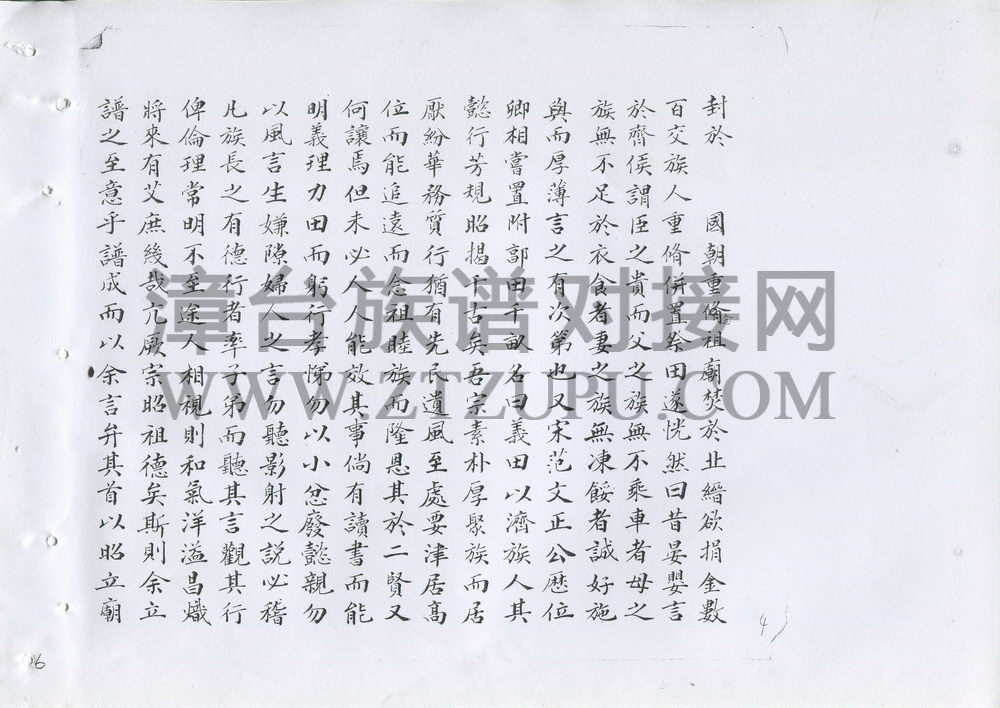 封於　國朝重脩祖廟焚於北緡欲捐金數
百交族人重脩併置祭田遂恍然曰昔晏嬰言
於齊侯謂臣之貴而父之族無不乘車者母之
族無不足於衣食者妻之族無凍餒者誠好施
與而厚薄言之有次第也又宋范文正公歷位
卿相嘗置附郭田千畝名曰義田以濟族人其
懿行芳規昭揭千古矣吾宗素朴厚聚族而居
厭紛華務質行猶有先民遺風至處要津居高
位而能追遠而念祖睦族而隆恩其於二賢又
何讓焉但未必人人能效其事倘有讀書而能
明義理力田而躬行孝悌勿以小忿廢懿親勿
以風言生嫌隙婦人之言勿聽影射之説必稽
凡族長之有德行者率子弟而聽其言觀其行
俾倫理常明不至途人相視則和氣洋溢昌熾
將來有艾庶幾哉亢厥宗昭祖德矣斯則余立
譜之至意乎譜成而以余言弁其首以昭立廟
4
16
漳台族谱对接网
WWW.ZTZUPU.COM